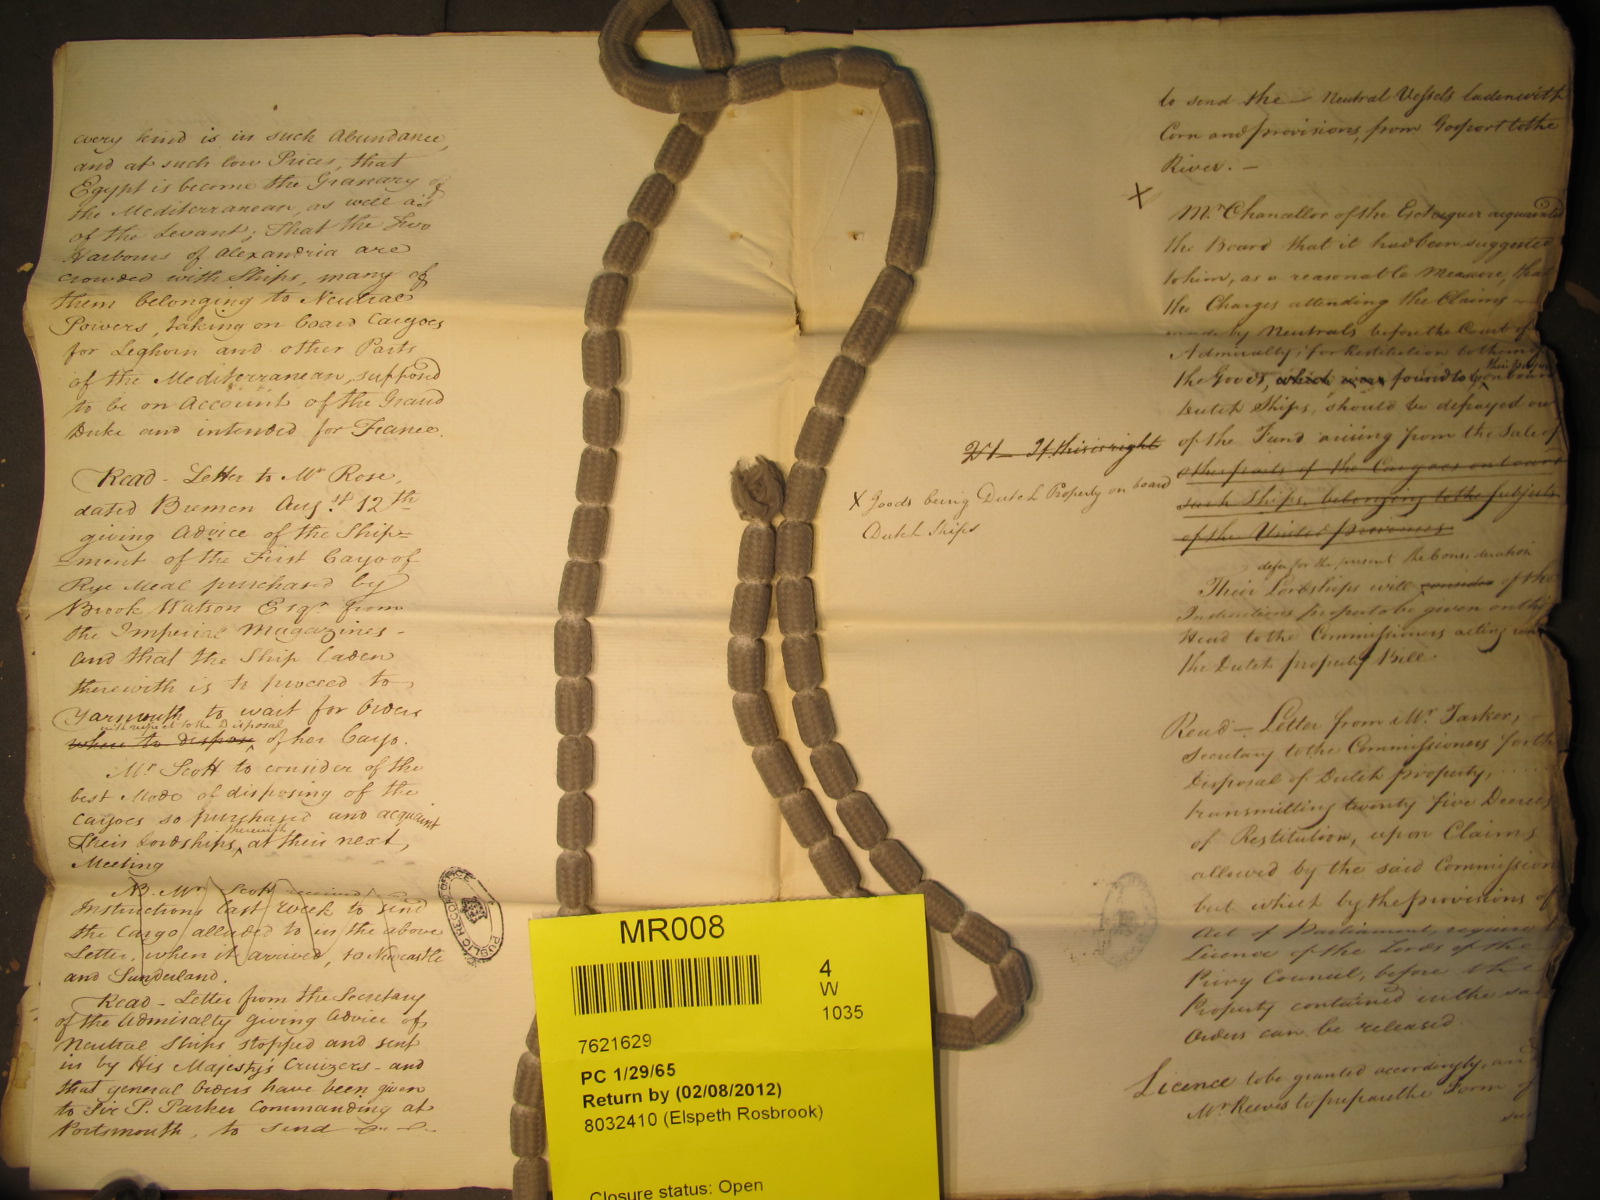 every kind is in such Abundance,
and at such low Prices, that
Egypt is become the Granary of
the Mediterranean, as well as
of the Levant; That the Two
Harbours of Alexandria are
crowded with Ships, many of
them belonging to Neutral
Powers, taking on board Cargoes
for Leghorn and other Parts
of the Mediterranean, supposed
to be on Account of the Grand
Duke and intended for France.
Read - Letter to Mr Rose,
dated Bremen Augst 12th
giving Advice of the Ship=
=ment of the First Cargo of
Rye Meal purchased by
Brook Watson Esqr from
the Imperial Magazines -
and that the Ship laden
therewith is to proceed to
Yarmouth to wait for Orders
with respect to the Disposal
where to dispose of her Cargo.
Mr Scott to consider of the
best Mode of disposing of the
Cargoes so purchased and acquaint
therewith
Their Lordships, at their next,
Meeting
NB. Mr Scott received
Instructions last Week to send
the Cargo alluded to in the above
Letter, when it arrived, to Newcastle
and Sunderland.
Read - Letter from the Secretary
of the Admiralty giving Advice of
Neutral Ships stopped and sent
in by His Majesty's Cruizers - and
that general Orders have been given
to Sir P. Parker Commanding at
Portsmouth, to send
PUBLIC RECORD OFFICE
to send the - Neutral Vessels laden with
Corn and provisions, from Gosport to the
River. -
X
Mr Chancellor of the Exchequer acquainted
the Board that it had been suggested
to him, as a reasonable Measure, that
the Charges attending the Claims
made by Neutrals before the Court of
Admiralty, for Restitution to them of
the Goods, which were found to be on board
Dutch Ships, should be defrayed out
of the Fund arising from the Sale of
other parts of the Cargoes on board
such Ships, belonging to the Subjects
of the United provinces
Qy If this is right
X Goods being Dutch Property on board
Dutch Ships
defer for the present the Consideration
Their Lordships will consider of the
Instructions proper to be given on this
Head to the Commissioners acting under
the Dutch property Bill.
Read - Letter from Mr Tasker,
Secretary to the Commissioners for the
Disposal of Dutch property,
transmitting twenty five Decrees
of Restitution, upon Claims
allowed by the said Commission
but which by the provisions of
Act of Parliament, require
Licence of the Lords of the
Privy Council, before the
Property contained in the said
Orders can be released.
Licence to be granted accordingly, and
Mr Reeves to prepare the Form of
such
MR008
4
W
1035
7621629
PC 1/29/65
Return by (02/08/2012)
8032410 (Elspeth Rosbrook)
Closure status: Open